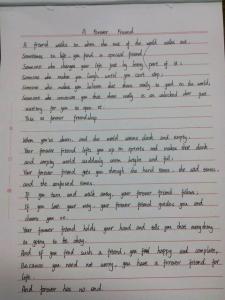 A Forever Friend
A friend walks in when the rest of the world walks out.
Sometimes in life, you find a special friend;
Someone who changes your life just by being part of it;
Someone who makes you laugh until you can't stop;
Someone who makes you believe that there really is good in the world;
Someone who convinces you that there really is an unlocked door just
waiting for you to open it.
This is forever friendship.
When you're down, and the world seems dark and empty,
Your forever friend lifts you up in spirits and makes that dark
and empty world suddenly seem bright and full;
Your forever friend gets you through the hard times, the sad times,
and the confused times.
If you turn and walk away, your forever friend follows;
If you lose your way, your forever friend guides you and
cheers you on.
Your forever friend holds your hand and tells you that everything
is going to be okay.
And if you find such a friend, you feel happy and complete,
Because you need not worry, you have a forever friend for
life.
And forever has no end.